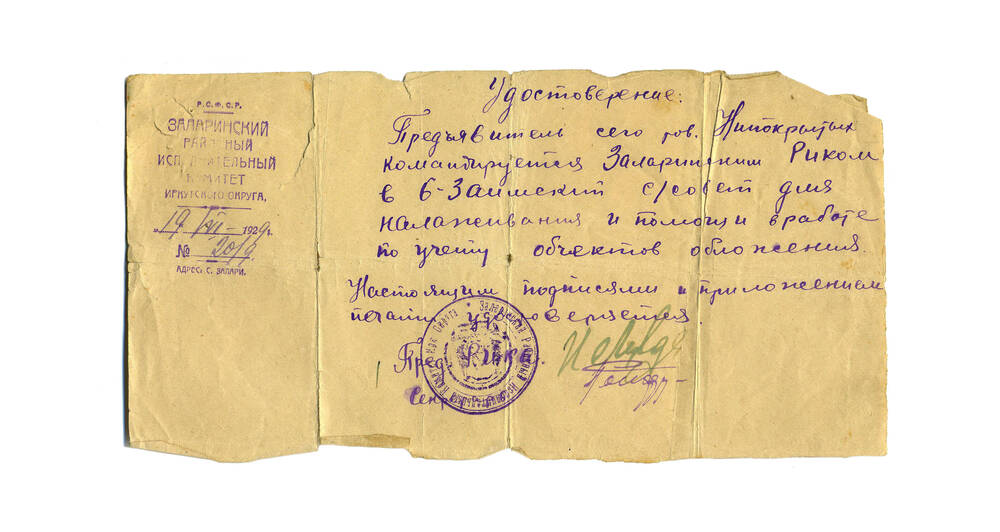 Р.С.Ф.С.Р.
ЗАЛАРИНСКИЙ
РАЙОННЫЙ
ИСПОЛНИТЕЛЬНЫЙ
КОМИТЕТ
ИРКУТСКОГО ОКРУГА,
„19 VII — 1929г.
№ 2019
АДРЕС: С. ЗАЛАРИ.
Удостоверение:
Предъявитель сего тов. Нипокрытых
командируется Заларинским Риком
в 6-Заимский с/совет для
налаживания и помощи в работе
по учету объектов обложения.
Настоящим подписями и приложением
печати удостоверяется.
Пред. Рика.
Секр